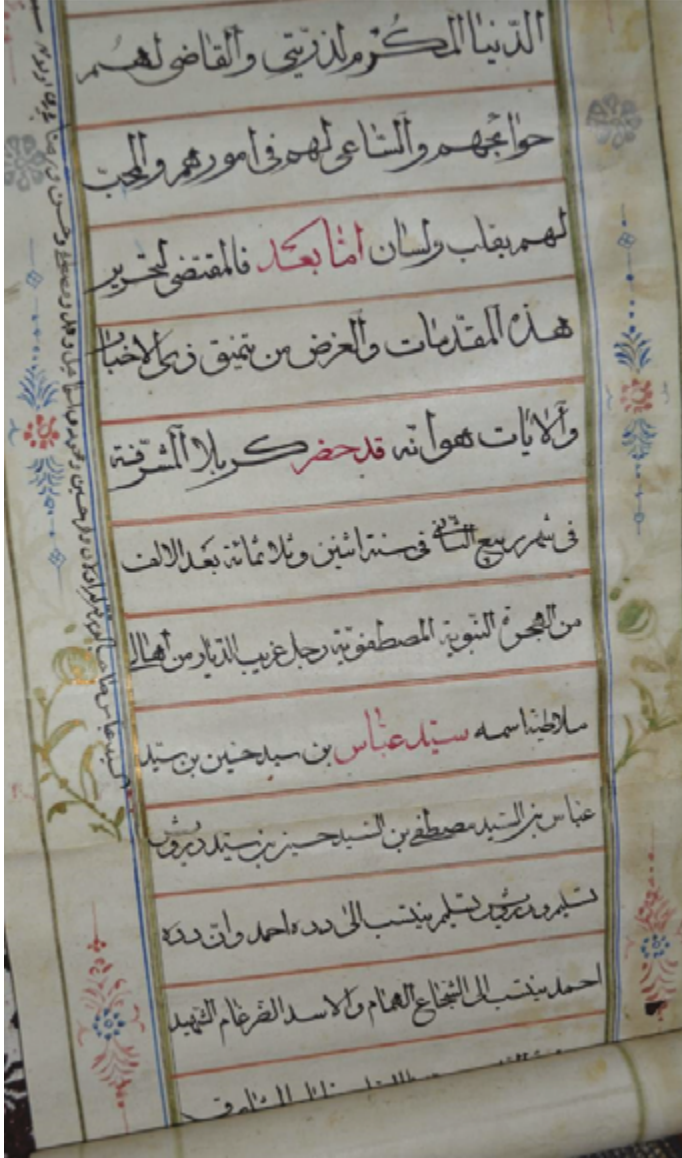 الدّنيا المكرم لذريتي والقاضي لهم
حوائجهم والساعي لهم في امورهم والمحبّ
لهم بقلب ولسان امّا بعد فالمقتضى لتحرير
هذه المقدّمات والغرض من تنميق ذى الاخبار
والايات هو انه قد حضر كربلا المشرّفة
فى شهر ربيع الثّانى فى سنة اثنين وثلاثمائة بعد الالف
من الهجرة النّبوية المصطفويّة رجل غريب الديار من اهالى
ملاطية اسمه سيّد عبّاس بن سيد حسين بن سيّد
عباس بن السّيد مصطفى بن السّيد حسين بن سيّد درويش
تسليم ودرويش تسليم ينتسب الى دده احمد وان دده
احمد ينتسب الى الشّجاع الهمام والاسد الضّرغام الشّهيد